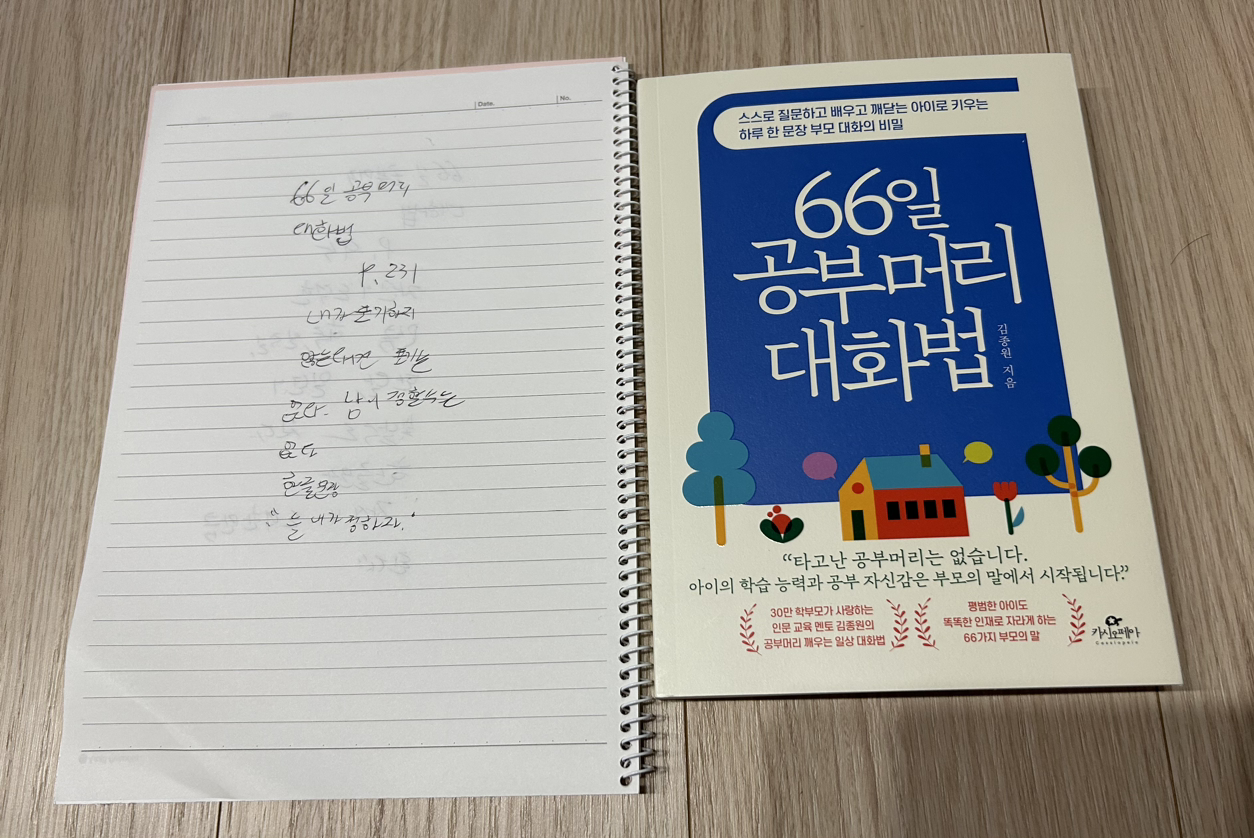 Date.
No.
66일 공부머리
대화법
P. 231
내가 포기하지
않는다면 포기는
없다. 남이 정할 수는
없다
한글문장
늘 내가 정하자."
스스로 질문하고 배우고 깨닫는 아이로 키우는
하루 한 문장 부모 대화의 비밀
66일
공부머리
대화법
김종원 지음
“타고난 공부머리는 없습니다.
아이의 학습 능력과 공부 자신감은 부모의 말에서 시작됩니다.”
30만 학부모가 사랑하는
인문 교육 멘토 김종원의
공부머리 깨우는 일상 대화법
평범한 아이도
똑똑한 인재로 자라게 하는
66가지 부모의 말
카시오페아
Cassiopeia